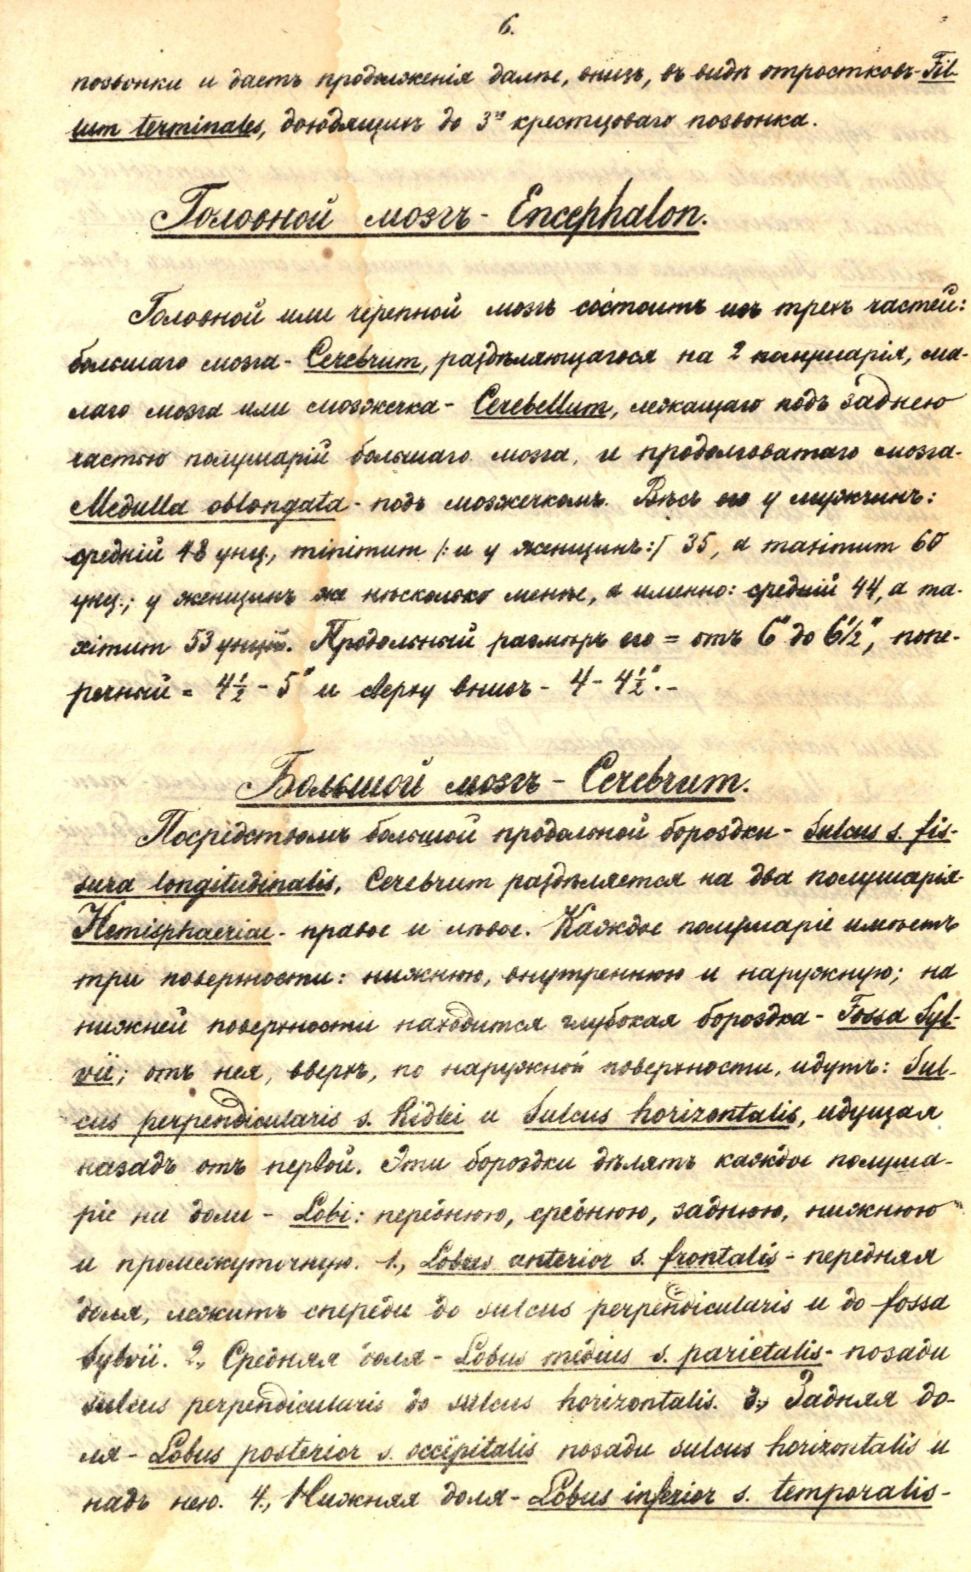 6.
позвонки и даетъ продолженія далѣе, внизъ, въ видѣ отростковъ-Fil-
lum terminales, доходящихъ до 3го крестцоваго позвонка.
Головной мозгъ - Encephalon.
Головной или черепной мозгъ состоитъ изъ трехъ частей:
большаго мозга - Cerebrum, раздѣляющагося на 2 полушарія, ма-
лаго мозга или мозжечка - Cerebellum, лежащаго подъ заднею
частью полушарій большаго мозга, и продолговатаго мозга-
Medulla oblongata - подъ мозжечкомъ. Вѣсъ его у мужчинъ:
средній 48 унц., minimum /: и у женщинъ :/ 35, а maximum 60
унц.; у женщинъ же нѣсколько менѣе, а именно: средній 44, а ma-
ximum 53 унцій. Продольный размѣръ его = отъ 6" до 6½", попе-
речный = 4½ - 5" и сверху внизъ - 4 - 4½". -
Большой мозгъ - Cerebrum.
Посредствомъ большой продольной бороздки - Sulcus s. fis-
sura longitudinalis, Cerebrum раздѣляется на два полушарія-
Hemisphaeriae - правое и лѣвое. Каждое полушаріе имѣетъ
три поверхности: нижнюю, внутреннюю и наружную; на
нижней поверхности находится глубокая бороздка - Fossa Syl-
vii; отъ нея, вверхъ, по наружной поверхности, идутъ: Sul-
cus perpendicularis s. Ridlei и Sulcus horizontalis, идущая
назадъ отъ первой. Эти бороздки дѣлятъ каждое полуша-
ріе на доли - Lobi: переднюю, среднюю, заднюю, нижнюю
и промежуточную. 1., Lobus anterior s. frontalis - передняя
доля, лежитъ спереди до sulcus perpendicularis и до fossa
Sylvii. 2., Средняя доля - Lobus medius s. parietalis - позади
sulcus perpendicularis до sulcus horizontalis. 3., Задняя до-
ля - Lobus posterior s. occipitalis позади sulcus horizontalis и
надъ нею. 4., Нижняя доля - Lobus inferior s. temporalis -